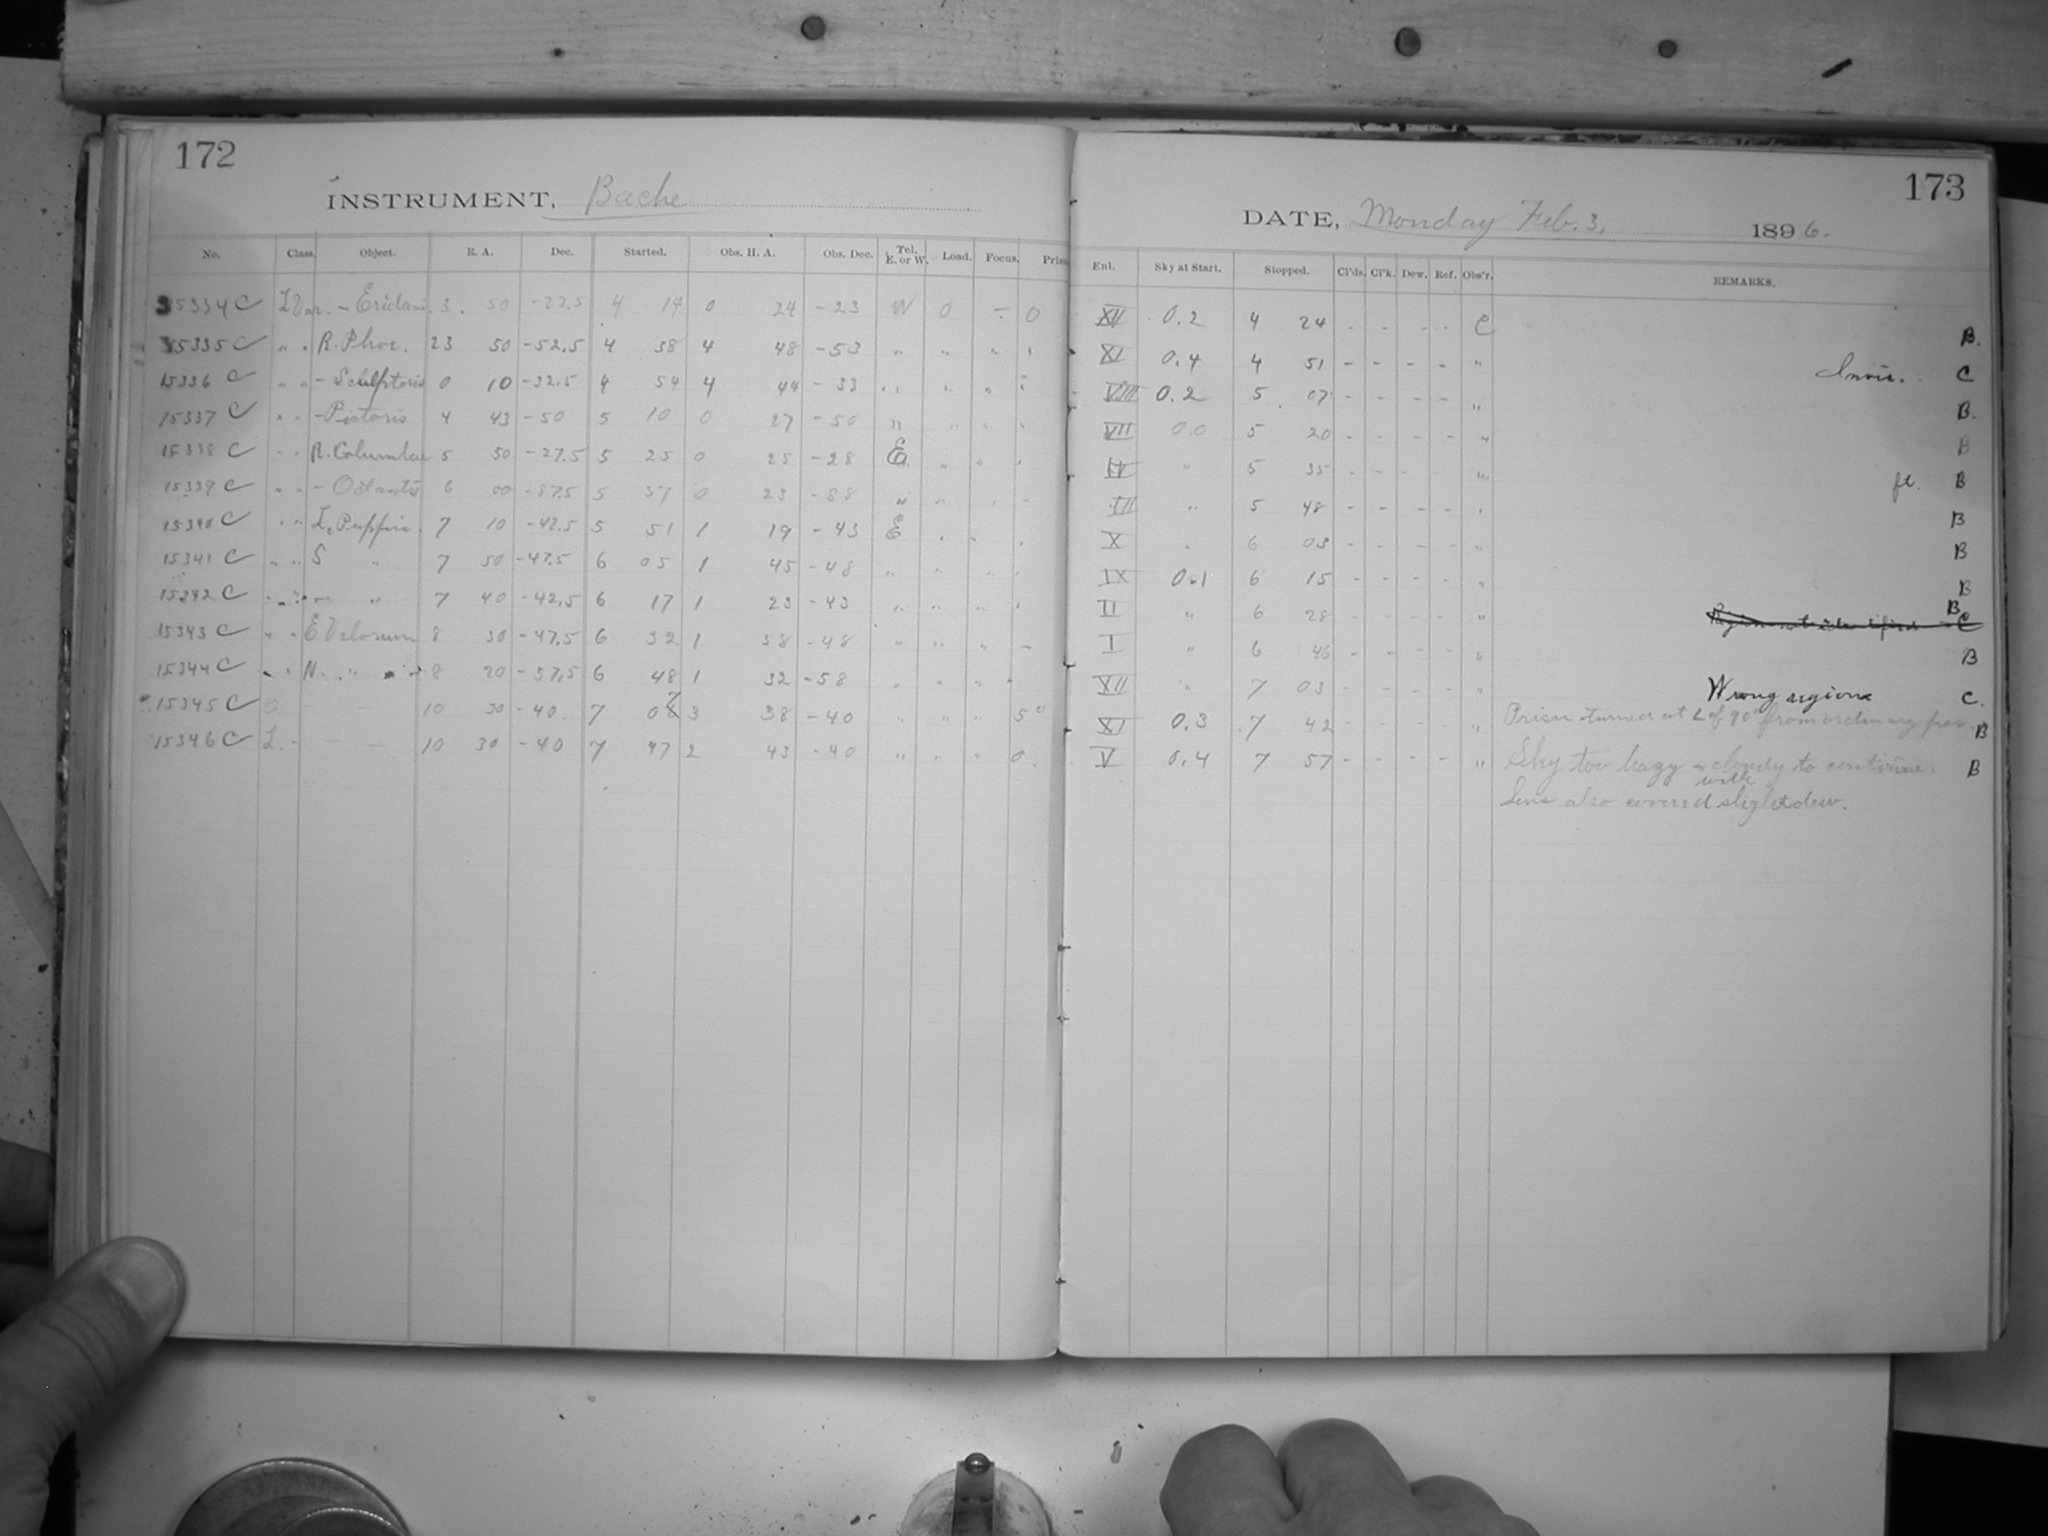 172
INSTRUMENT, Bache
No. Class. Object. R. A. Dec. Started. Obs. H. A. Obs. Dec. Tel. E. or W. Load. Focus. Prism
15334 C L Var. - Eridani 3. 50 -22.5 4 14 0 24 -23 W 0 - 0
15335 C " " R. Phoe. 23 50 -52.5 4 38 4 48 -53 " " " "
15336 C " " - Sculptoris 0 10 -32.5 4 54 4 44 -33 " " " "
15337 C " " - Pictoris 4 43 -50 5 10 0 27 -50 " " " "
15338 C " " R. Columbae 5 50 -27.5 5 25 0 25 -28 E " " "
15339 C " " - Octantis 6 00 -87.5 5 37 0 23 -88 " " " "
15340 C " " L2 Puppis. 7 10 -42.5 5 51 1 19 -43 E " " "
15341 C " " S " 7 50 -47.5 6 05 1 45 -48 " " " "
15342 C " " - " 7 40 -42.5 6 17 1 23 -43 " " " "
15343 C " " E Velorum 8 30 -47.5 6 32 1 58 -48 " " " "
15344 C " " N. " 8 20 -57.5 6 48 1 32 -58 " " " "
15345 C O - - 10 30 -40. 7 07 3 38 -40 " " " 5°
15346 C L. - - 10 30 -40 7 47 2 43 -40 " " " 0.
173
DATE, Monday Feb. 3, 1896.
Enl. Sky at Start. Stopped. Cl'ds. Cl'k. Dew. Ref. Obs'r. REMARKS.
XII 0.2 4 24 - - - - C B.
XI 0.4 4 51 - - - - " Invis. C
VIII 0.2 5 07 - - - - " B.
VII 0.0 5 20 - - - - " B
IV " 5 35 - - - - " ft. B
III " 5 48 - - - - " B
X " 6 03 - - - - " B
IX 0.1 6 15 - - - - " B
II " 6 28 - - - - " B
I " 6 46 - - - - " B
XII " 7 03 - - - - " Wrong region C.
XI 0.3 7 42 - - - - " Prism turned at ∠ of 90° from ordinary pos. B
V 0.4 7 57 - - - - " Sky too hazy & cloudy to continue. B
Lens also covered with slight dew.